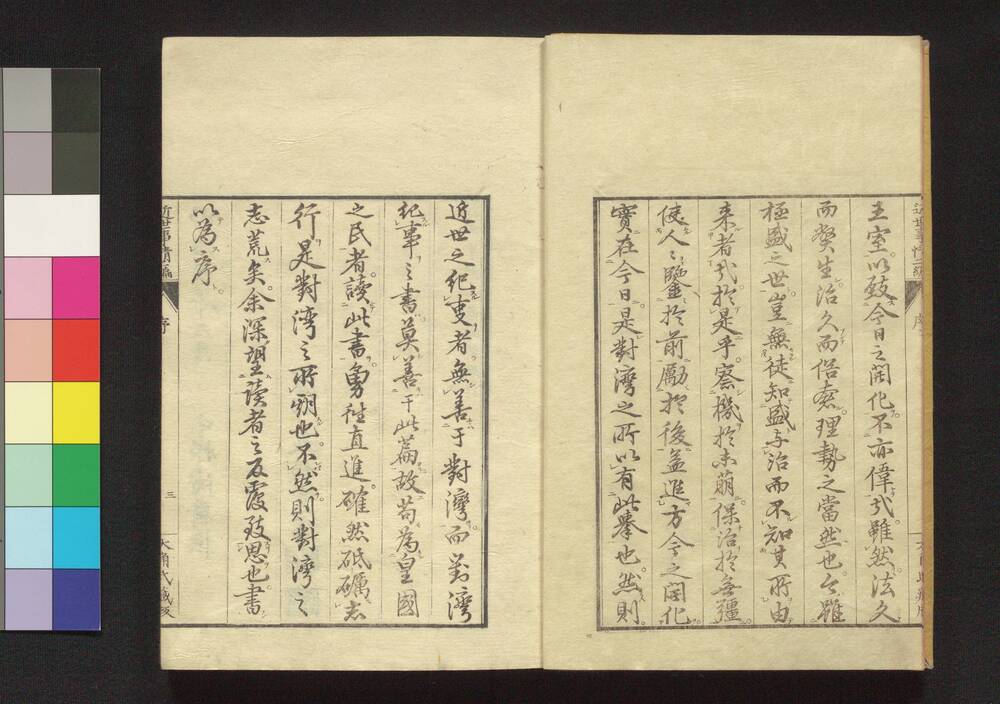 王室以致今日之開化不亦偉哉雖然法久
而弊生治久而俗惷理勢之當然也今雖
極盛之世豈無徒知盛与治而不知其所由
来者哉於是乎察機於未萌保治於無疆
使人々鑒於前勵於後益進方今之開化
實在今日是對湾之所以有此擧也然則
近世之紀事者無善于對灣而對灣
紀事之書莫善于此篇故苟為皇國
之民者讀此書勇往直進確然砥礪志
行是對湾之所期也不然則對湾之
志荒矣余深望読者之反覆致思也書
以為序
序
三